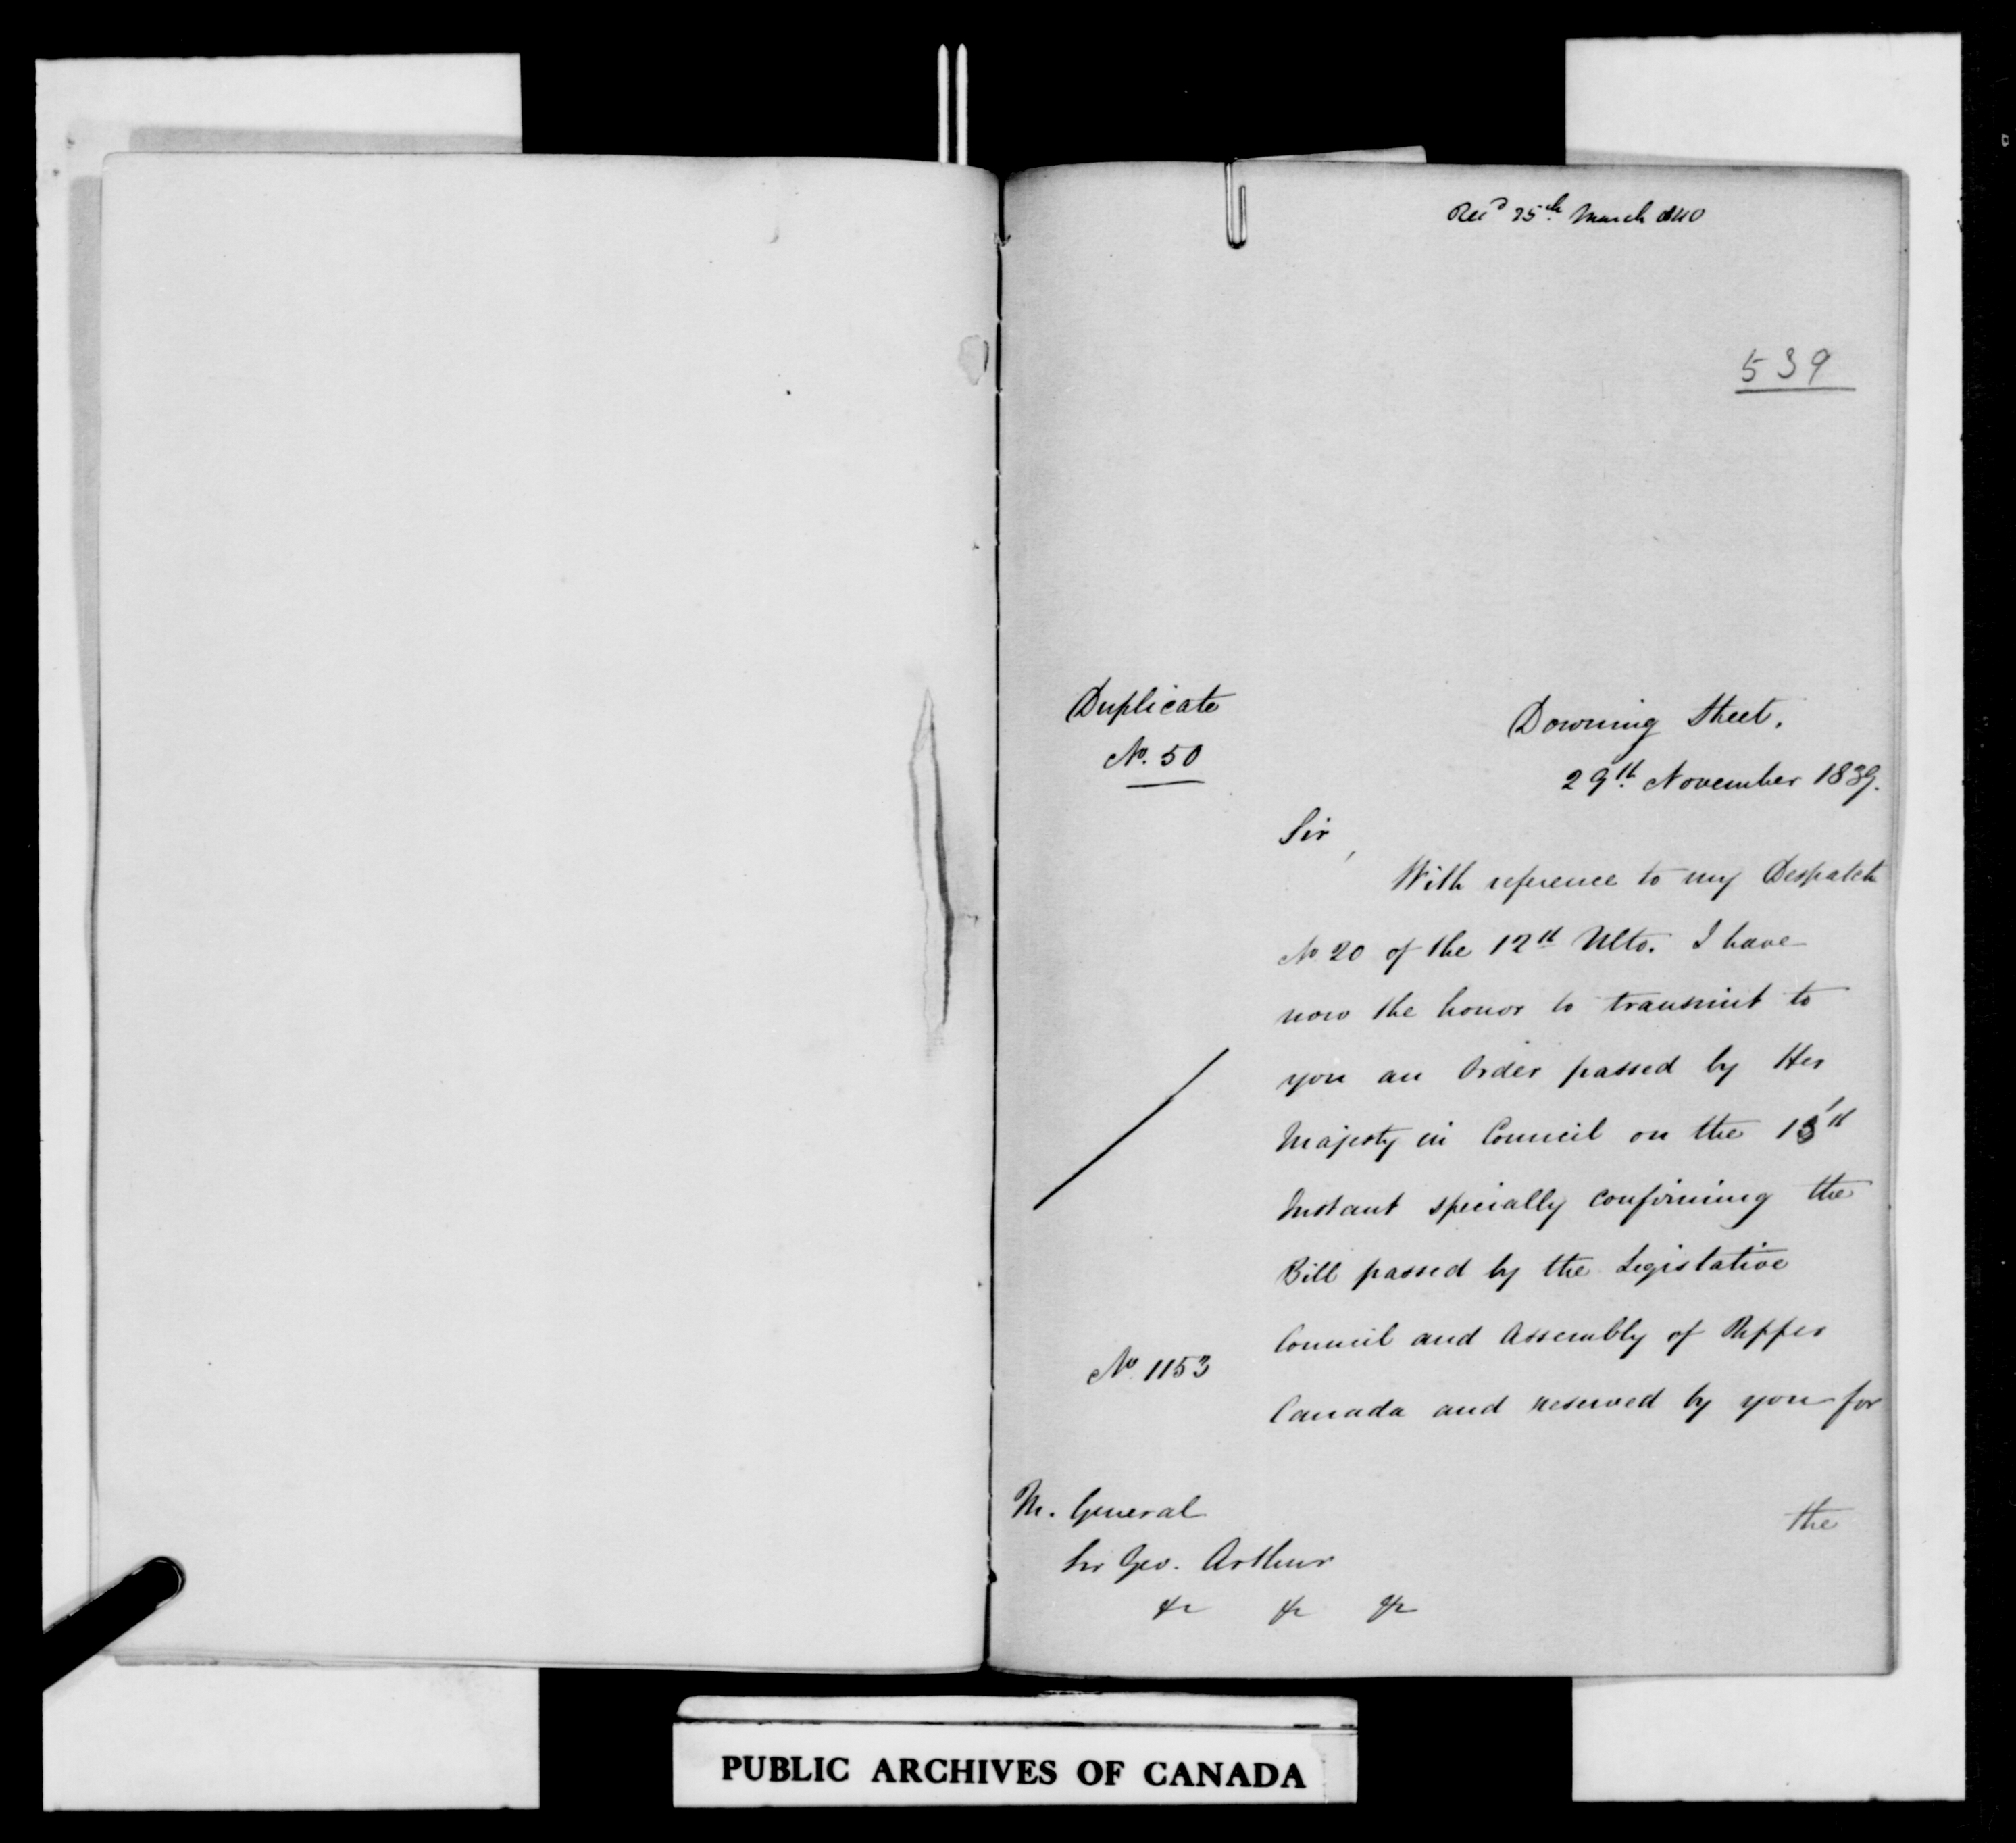 Recd 25th March 1840
539
Duplicate
No. 50
Downing Street.
29th November 1839.
Sir,
With reference to my Despatch
No 20 of the 12th Ulto. I have
now the honor to transmit to
you an Order passed by Her
Majesty in Council on the
Instant specially confirming the
Bill passed by the Legislative
Council and Assembly of Upper
No 1153
Canada and reserved by you for
the
M. General
Sir Geo. Arthur
&c &c &c
PUBLIC ARCHIVES OF CANADA